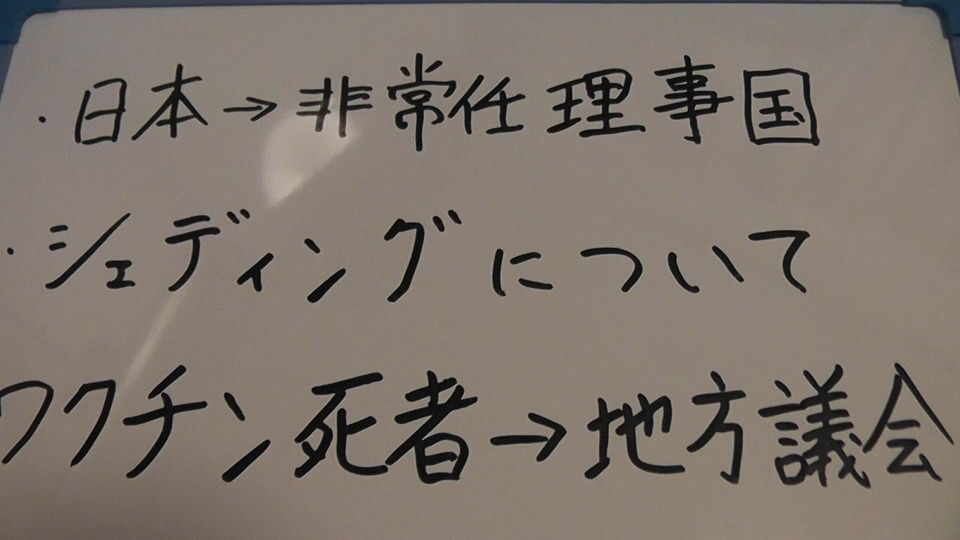 ・日本→非常任理事国
・シェディングについて
ワクチン死者→地方議会